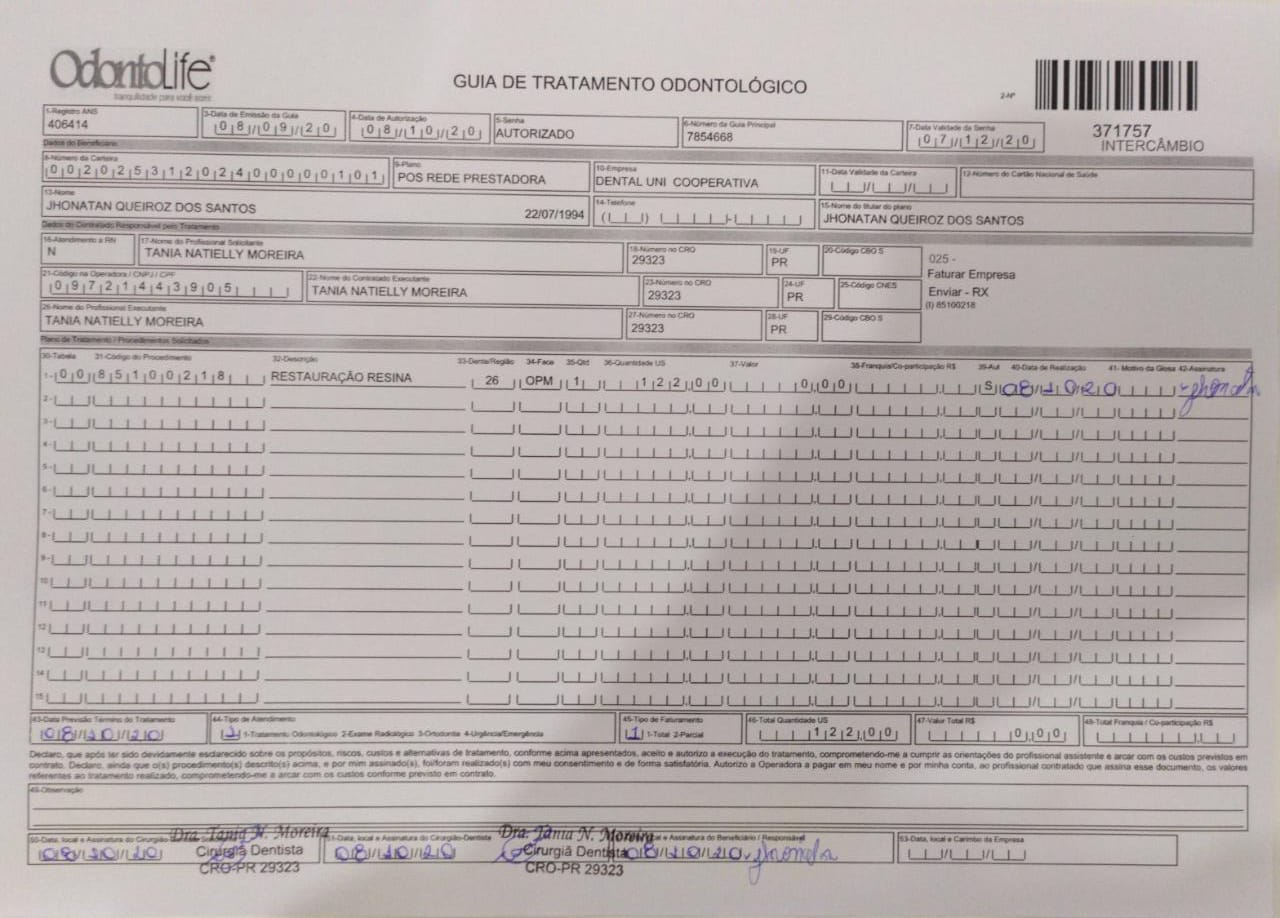 OdontoLife®
tranquilidade para você sorrir.
GUIA DE TRATAMENTO ODONTOLÓGICO
2-Nº
371757
INTERCÂMBIO
1-Registro ANS
406414
3-Data de Emissão da Guia
08/09/20
4-Data de Autorização
08/10/20
5-Senha
AUTORIZADO
6-Número da Guia Principal
7854668
7-Data Validade da Senha
07/12/20
Dados do Beneficiário
8-Número da Carteira
00202531202400000101
9-Plano
POS REDE PRESTADORA
10-Empresa
DENTAL UNI COOPERATIVA
11-Data Validade da Carteira
12-Número do Cartão Nacional de Saúde
13-Nome
JHONATAN QUEIROZ DOS SANTOS 22/07/1994
14-Telefone
15-Nome do titular do plano
JHONATAN QUEIROZ DOS SANTOS
Dados do Contratado Responsável pelo Tratamento
16-Atendimento a RN
N
17-Nome do Profissional Solicitante
TANIA NATIELLY MOREIRA
18-Número no CRO
29323
19-UF
PR
20-Código CBO S
025 -
Faturar Empresa
Enviar - RX
(I) 85100218
21-Código na Operadora / CNPJ / CPF
09721443905
22-Nome do Contratado Executante
TANIA NATIELLY MOREIRA
23-Número no CRO
29323
24-UF
PR
25-Código CNES
26-Nome do Profissional Executante
TANIA NATIELLY MOREIRA
27-Número no CRO
29323
28-UF
PR
29-Código CBO S
Plano de Tratamento / Procedimentos Solicitados
30-Tabela 31-Código do Procedimento 32-Descrição 33-Dente/Região 34-Face 35-Qtd 36-Quantidade US 37-Valor 38-Franquia/Co-participação R$ 39-Aut 40-Data de Realização 41- Motivo da Glosa 42-Assinatura
1- 00 85100218 RESTAURAÇÃO RESINA 26 OPM 1 122,00 0,00 S 08/10/20
2-
3-
4-
5-
6-
7-
8-
9-
10
11
12
13
14
15
43-Data Previsão Término do Tratamento
08/10/20
44-Tipo de Atendimento
1 1-Tratamento Odontológico 2-Exame Radiológico 3-Ortodontia 4-Urgência/Emergência
45-Tipo de Faturamento
1 1-Total 2-Parcial
46-Total Quantidade US
122,00
47-Valor Total R$
0,00
48-Total Franquia / Co-participação R$
Declaro, que após ter sido devidamente esclarecido sobre os propósitos, riscos, custos e alternativas de tratamento, conforme acima apresentados, aceito e autorizo a execução do tratamento, comprometendo-me a cumprir as orientações do profissional assistente e arcar com os custos previstos em
contrato. Declaro, ainda que o(s) procedimento(s) descrito(s) acima, e por mim assinado(s), foi/foram realizado(s) com meu consentimento e de forma satisfatória. Autorizo a Operadora a pagar em meu nome e por minha conta, ao profissional contratado que assina esse documento, os valores
referentes ao tratamento realizado, comprometendo-me a arcar com os custos conforme previsto em contrato.
49-Observação
50-Data, local e Assinatura do Cirurgião
08/10/20
Dra. Tania N. Moreira
Cirurgiã Dentista
CRO-PR 29323
51-Data, local e Assinatura do Cirurgião-Dentista
08/10/20
Dra. Tânia N. Moreira
Cirurgiã Dentista
CRO-PR 29323
local e Assinatura do Beneficiário / Responsável
08/10/20
53-Data, local e Carimbo da Empresa